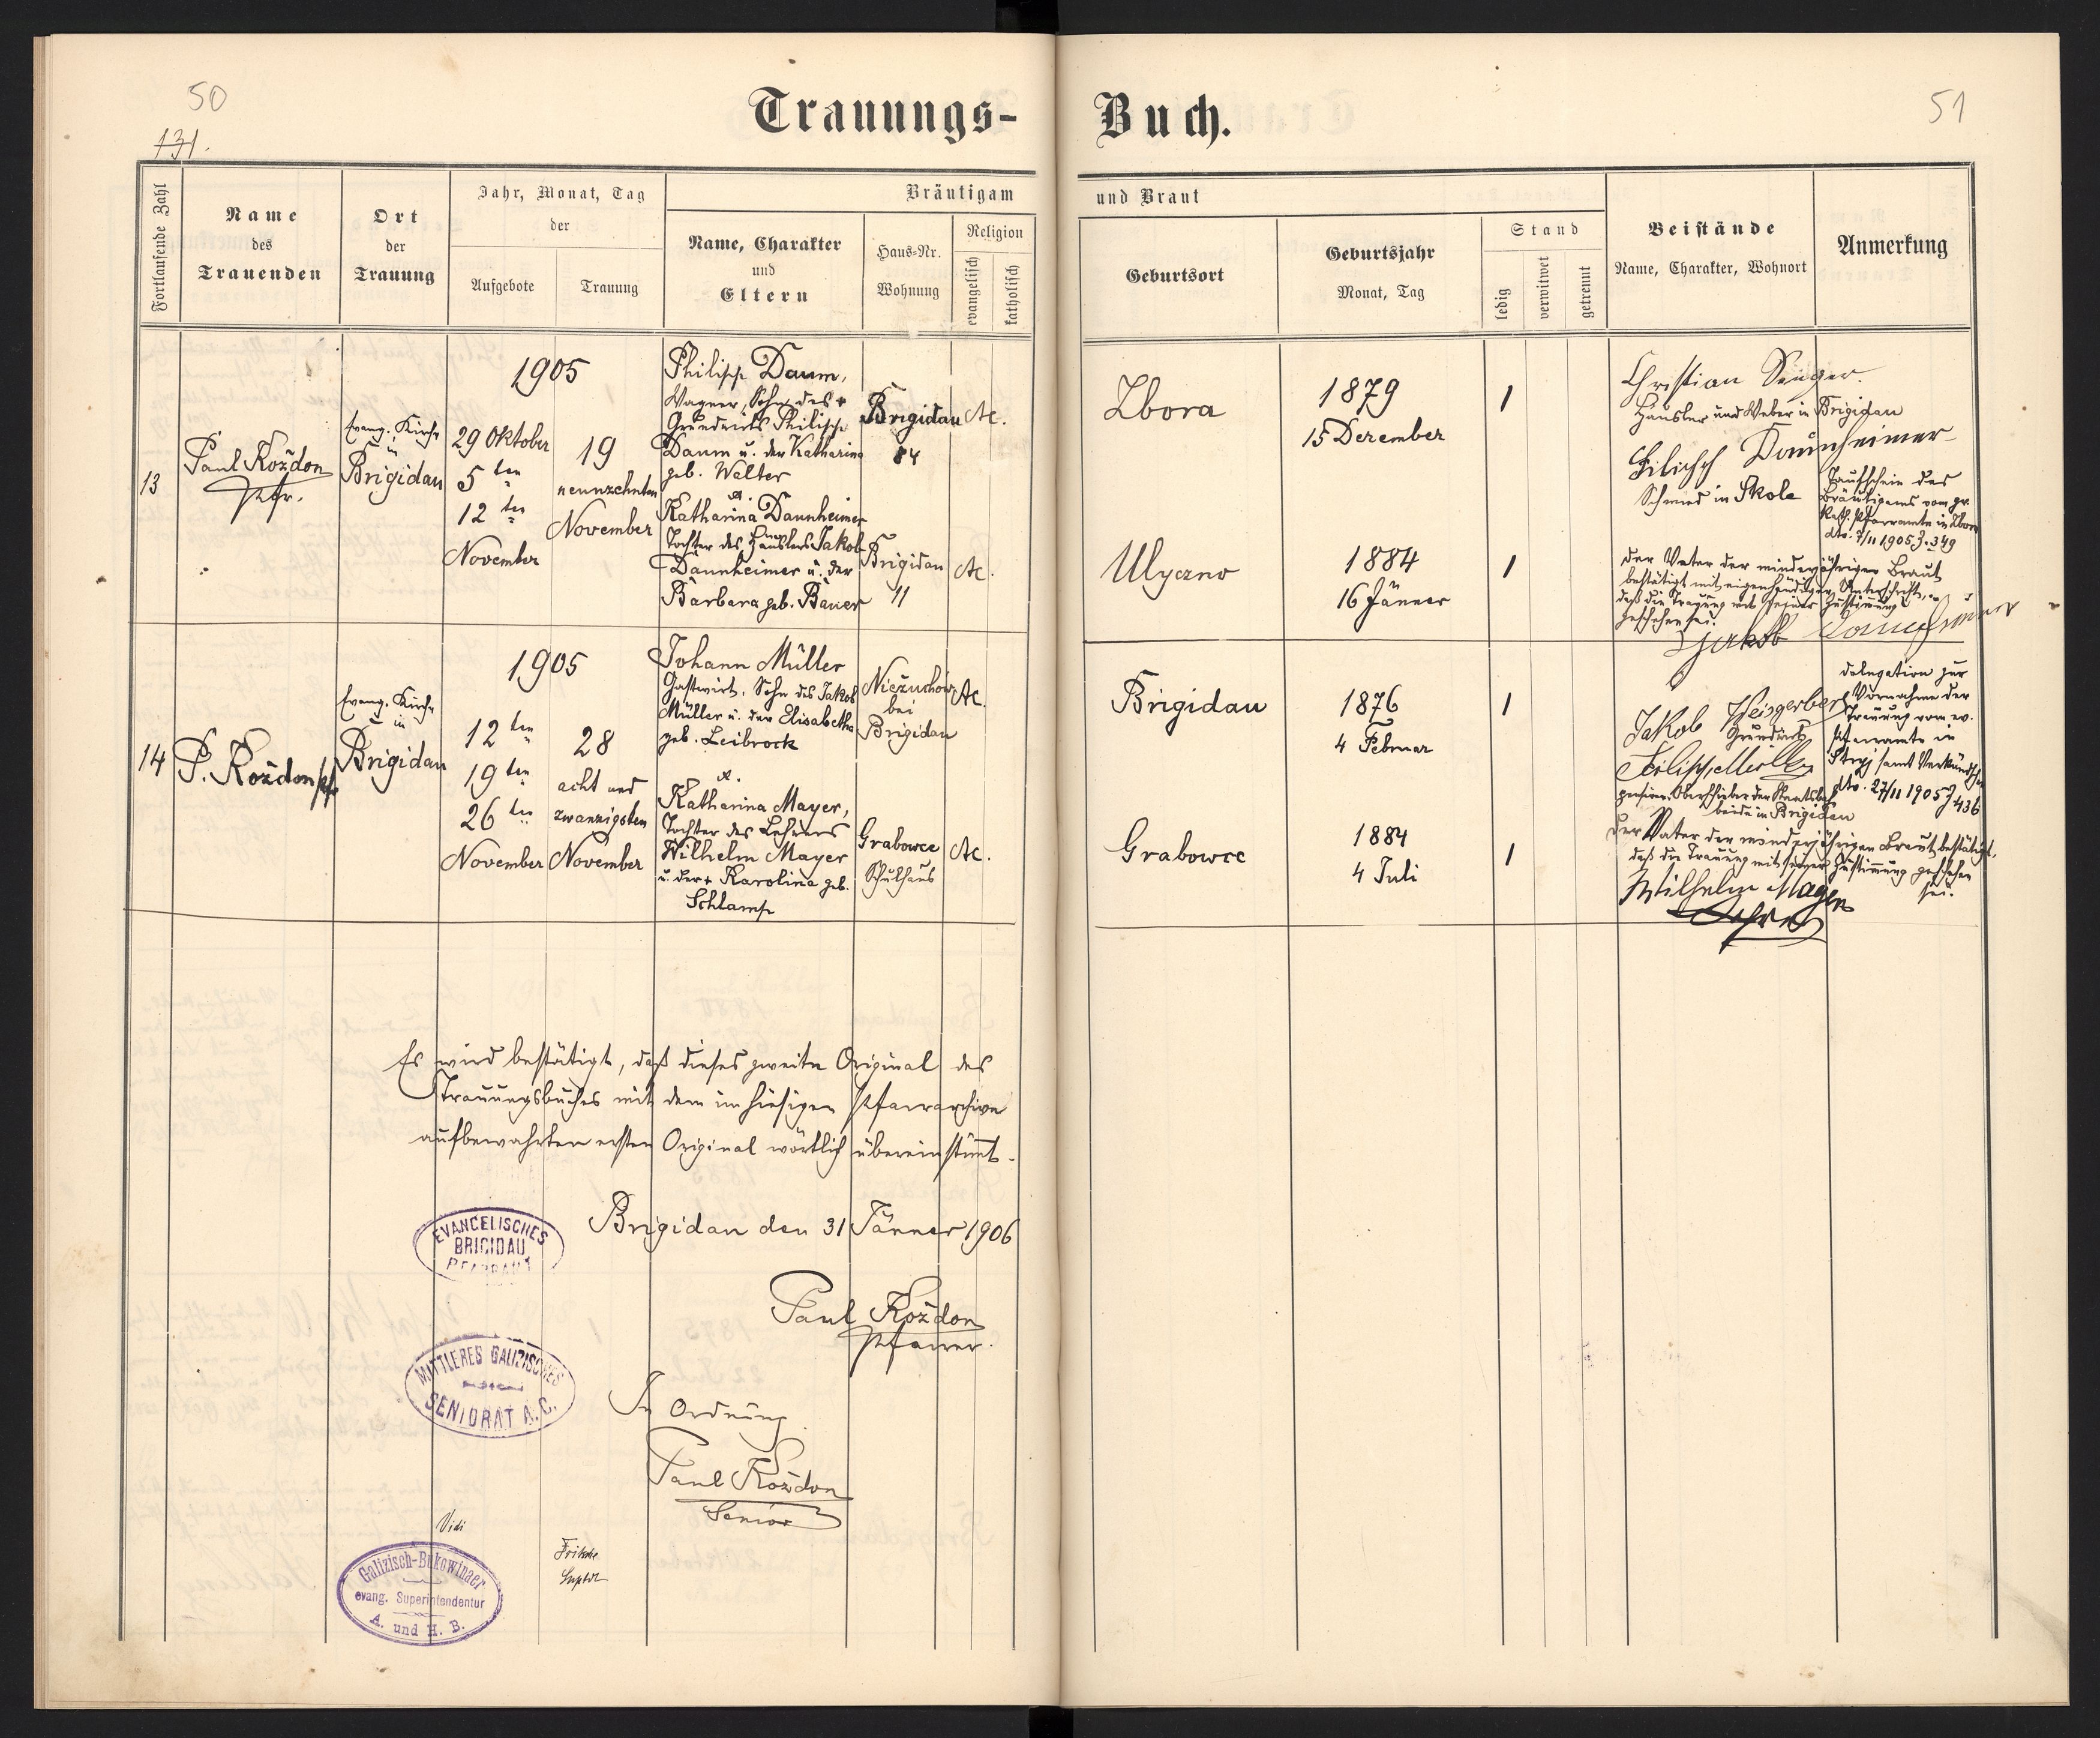 50
131.
Trauungs-
Buch.
51
Fortlaufende Zahl
Name
des
Trauenden
Ort
der
Trauung
Jahr, Monat, Tag
der
Aufgebote
Trauung
Bräutigam
Name, Charakter
und
Eltern
Haus-Nr.
Wohnung
Religion
evangelisch
katholisch
und Braut
Geburtsort
Geburtsjahr
Monat, Tag
Stand
ledig
verwitwet
getrennt
Beistände
Name, Charakter, Wohnort
Anmerkung
13
Paul Roždon
Pfr.
Evang. Kirche
in
Brigidau
1905
29 Oktober
5 ten
12 ten
November
19
neunzehnten
November
Philipp Daum,
Wagner, Sohn des +
Grundwirts Philipp
Daum u. der Katharina
geb. Walter
Brigidau
84
A.C.
Zbora
1879
15 Dezember
1
&.
Katharina Dannheimer
Tochter des Häuslers Jakob
Dannheimer u. der
Barbara geb. Bauer
Brigidau
11
A.C.
Ulyczno
1884
16 Jänner
1
Christian Senger.
Häusler und Weber in Brigidau
Filipp Dannheimer
Schmied in Skole
Taufschein des
Bräutigams vom gr.
kath. Pfarramte in Zbora
dto. 7/11 1905 Z. 349
Der Vater der minderjährigen Braut
bestätigt mit eigenhändiger Unterschrift,
daß die Trauung mit seiner Zustimmung
geschehen sei.
Jakob Dannheimer
14
P. Roždon Pfr.
Evang. Kirche
in
Brigidau
1905
12 ten
19 ten
26 ten
November
28
acht und
zwanzigsten
November
Johann Müller
Gastwirt, Sohn des Jakob
Müller u. der Elisabetha
geb. Leibrock
Niežuchów
bei
Brigidau
A.C.
Brigidau
1876
4 Februar
1
&.
Katharina Mayer,
Tochter des Lehrers
Wilhelm Mayer
u. der + Karolina geb.
Schlamp
Grabowce
Schulhaus
A.C.
Grabowce
1884
4 Juli
1
Jakob Weisgerber
Grundwirt
Filipp Müller
pension. Oberheizer der Staatsbahn
beide in Brigidau
Delegation zur
Vornahme der
Trauung vom ev.
Pfarramte in
Stryj samt Verkündschein
dto. 27/11 1905 Z 436
Der Vater der minderjährigen Braut bestätigt,
daß die Trauung mit seiner Zustimmung geschehen
sei.
Wilhelm Mayer
Lehrer
Es wird bestätigt, daß dieses zweite Original des
Trauungsbuches mit dem im hiesigen Pfarrarchive
aufbewahrten ersten Original wörtlich übereinstimmt.
Brigidau den 31 Jänner 1906
EVANGELISCHES
BRIGIDAU
PFARRAMT
Paul Roždon
Pfarrer.
MITTLERES GALIZISCHES
SENIORAT A. C.
In Ordnung
Paul Roždon
Senior
Vidi
Fritsche
Suptdt
Galizisch-Bukowinaer
evang. Superintendentur
A. und H. B.